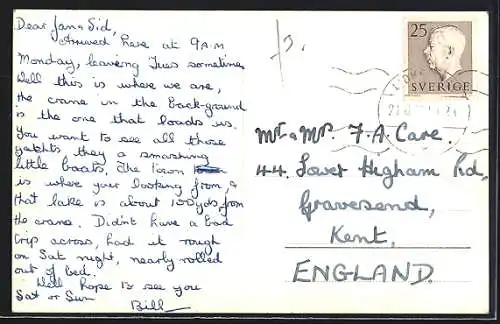 Dear Jan & Sid,
Arrived here at 9 A.M
Monday, leaving Tues sometime,
Well this is where we are,
the crane in the back-ground
is the one that loads us.
You want to see all those
yachts they a smashing
little boats. The Town
is where your looking from, &
that lake is about 100yds from
the crane. Didn't have a bad
trip across, had it rough
on Sat night, nearly rolled
out of bed.
Well Hope to see you
Sat or Sun
Bill
25
SVERIGE
Mr & Mrs F. A. Care.
44. Lower Higham Rd,
Gravesend,
Kent,
ENGLAND.